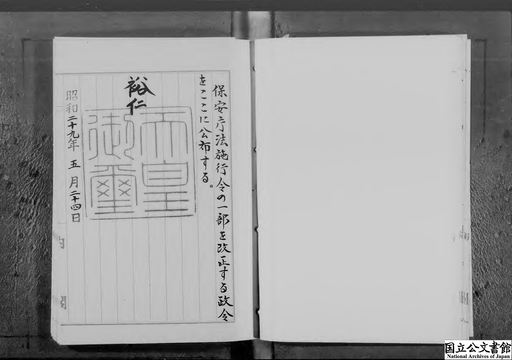 保安庁法施行令の一部を改正する政令
をここに公布する。
裕仁
天皇
御璽
昭和二十九年五月二十四日
国立公文書館
National Archives of Japan